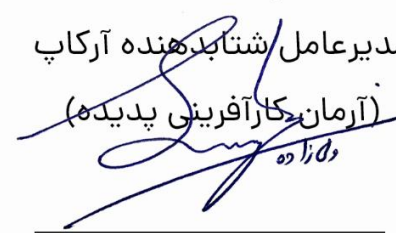 مدیرعامل شتابدهنده آرکاپ
(آرمان کارآفرینی پدیده)
ولی زاده